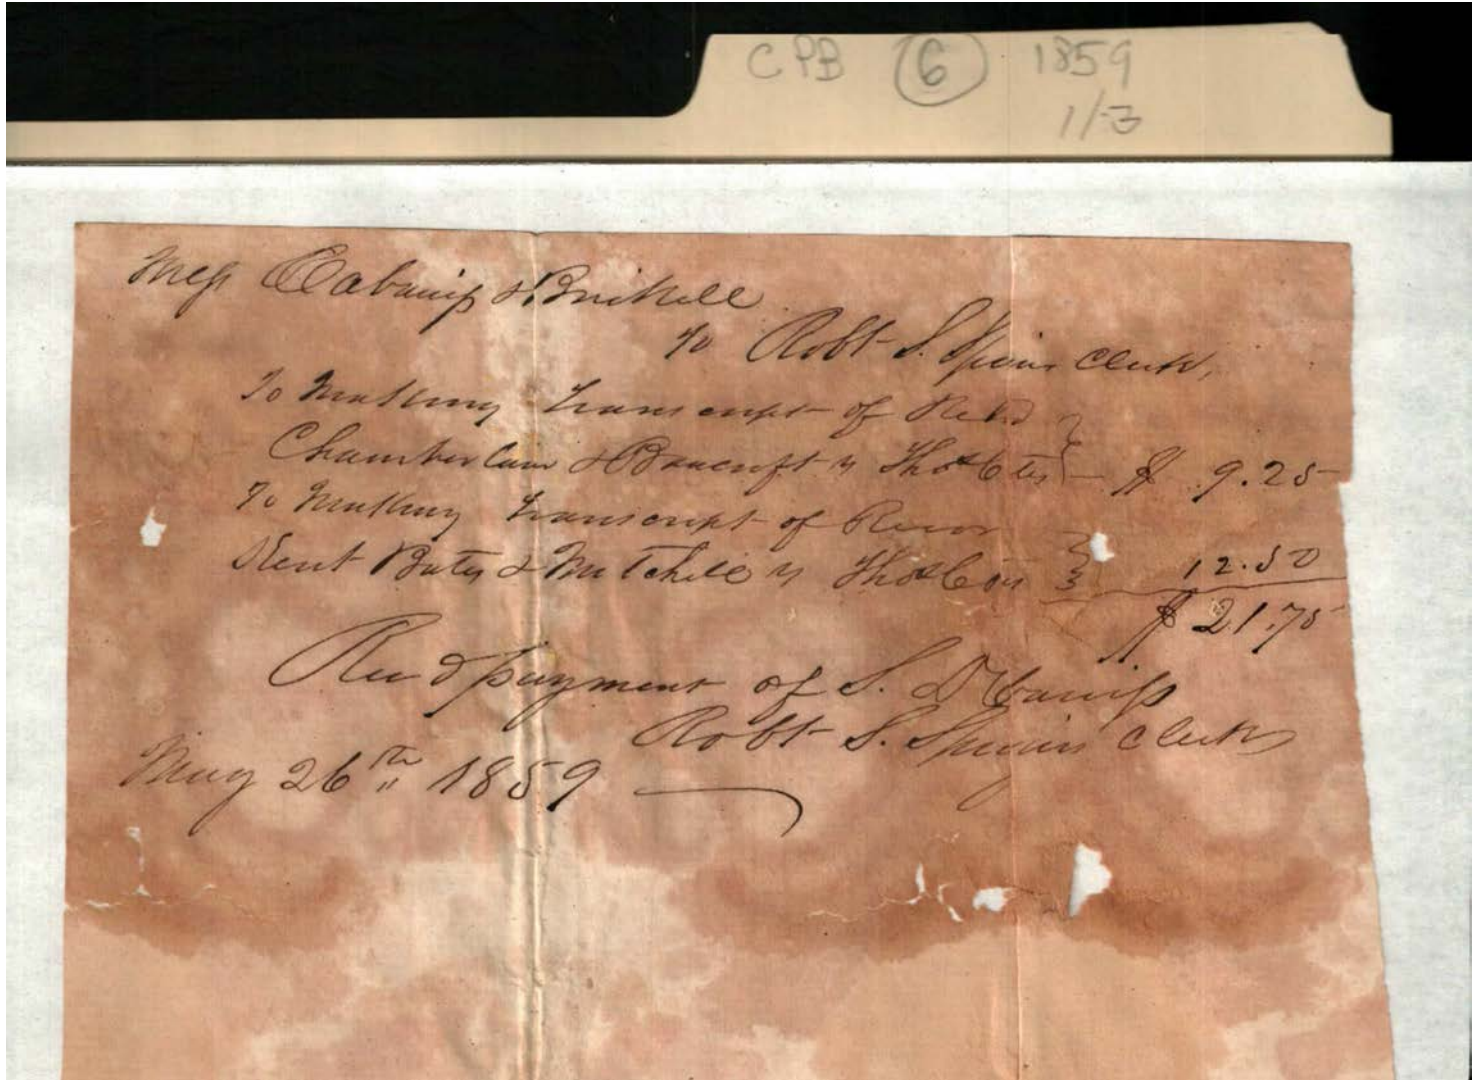 CPB 6 1859
1/3
Mess Cabaniss & Brickell
To Robt S. Clerk,
To Making Transcript of
Chamberlain & Bancroft vs $ 9.25
To Making Transcript of
Kent Bates & Mitchell vs 12.50
$ 21.75
Recd payment of S. D Cabaniss
Robt S. Clerk
May 26th 1859